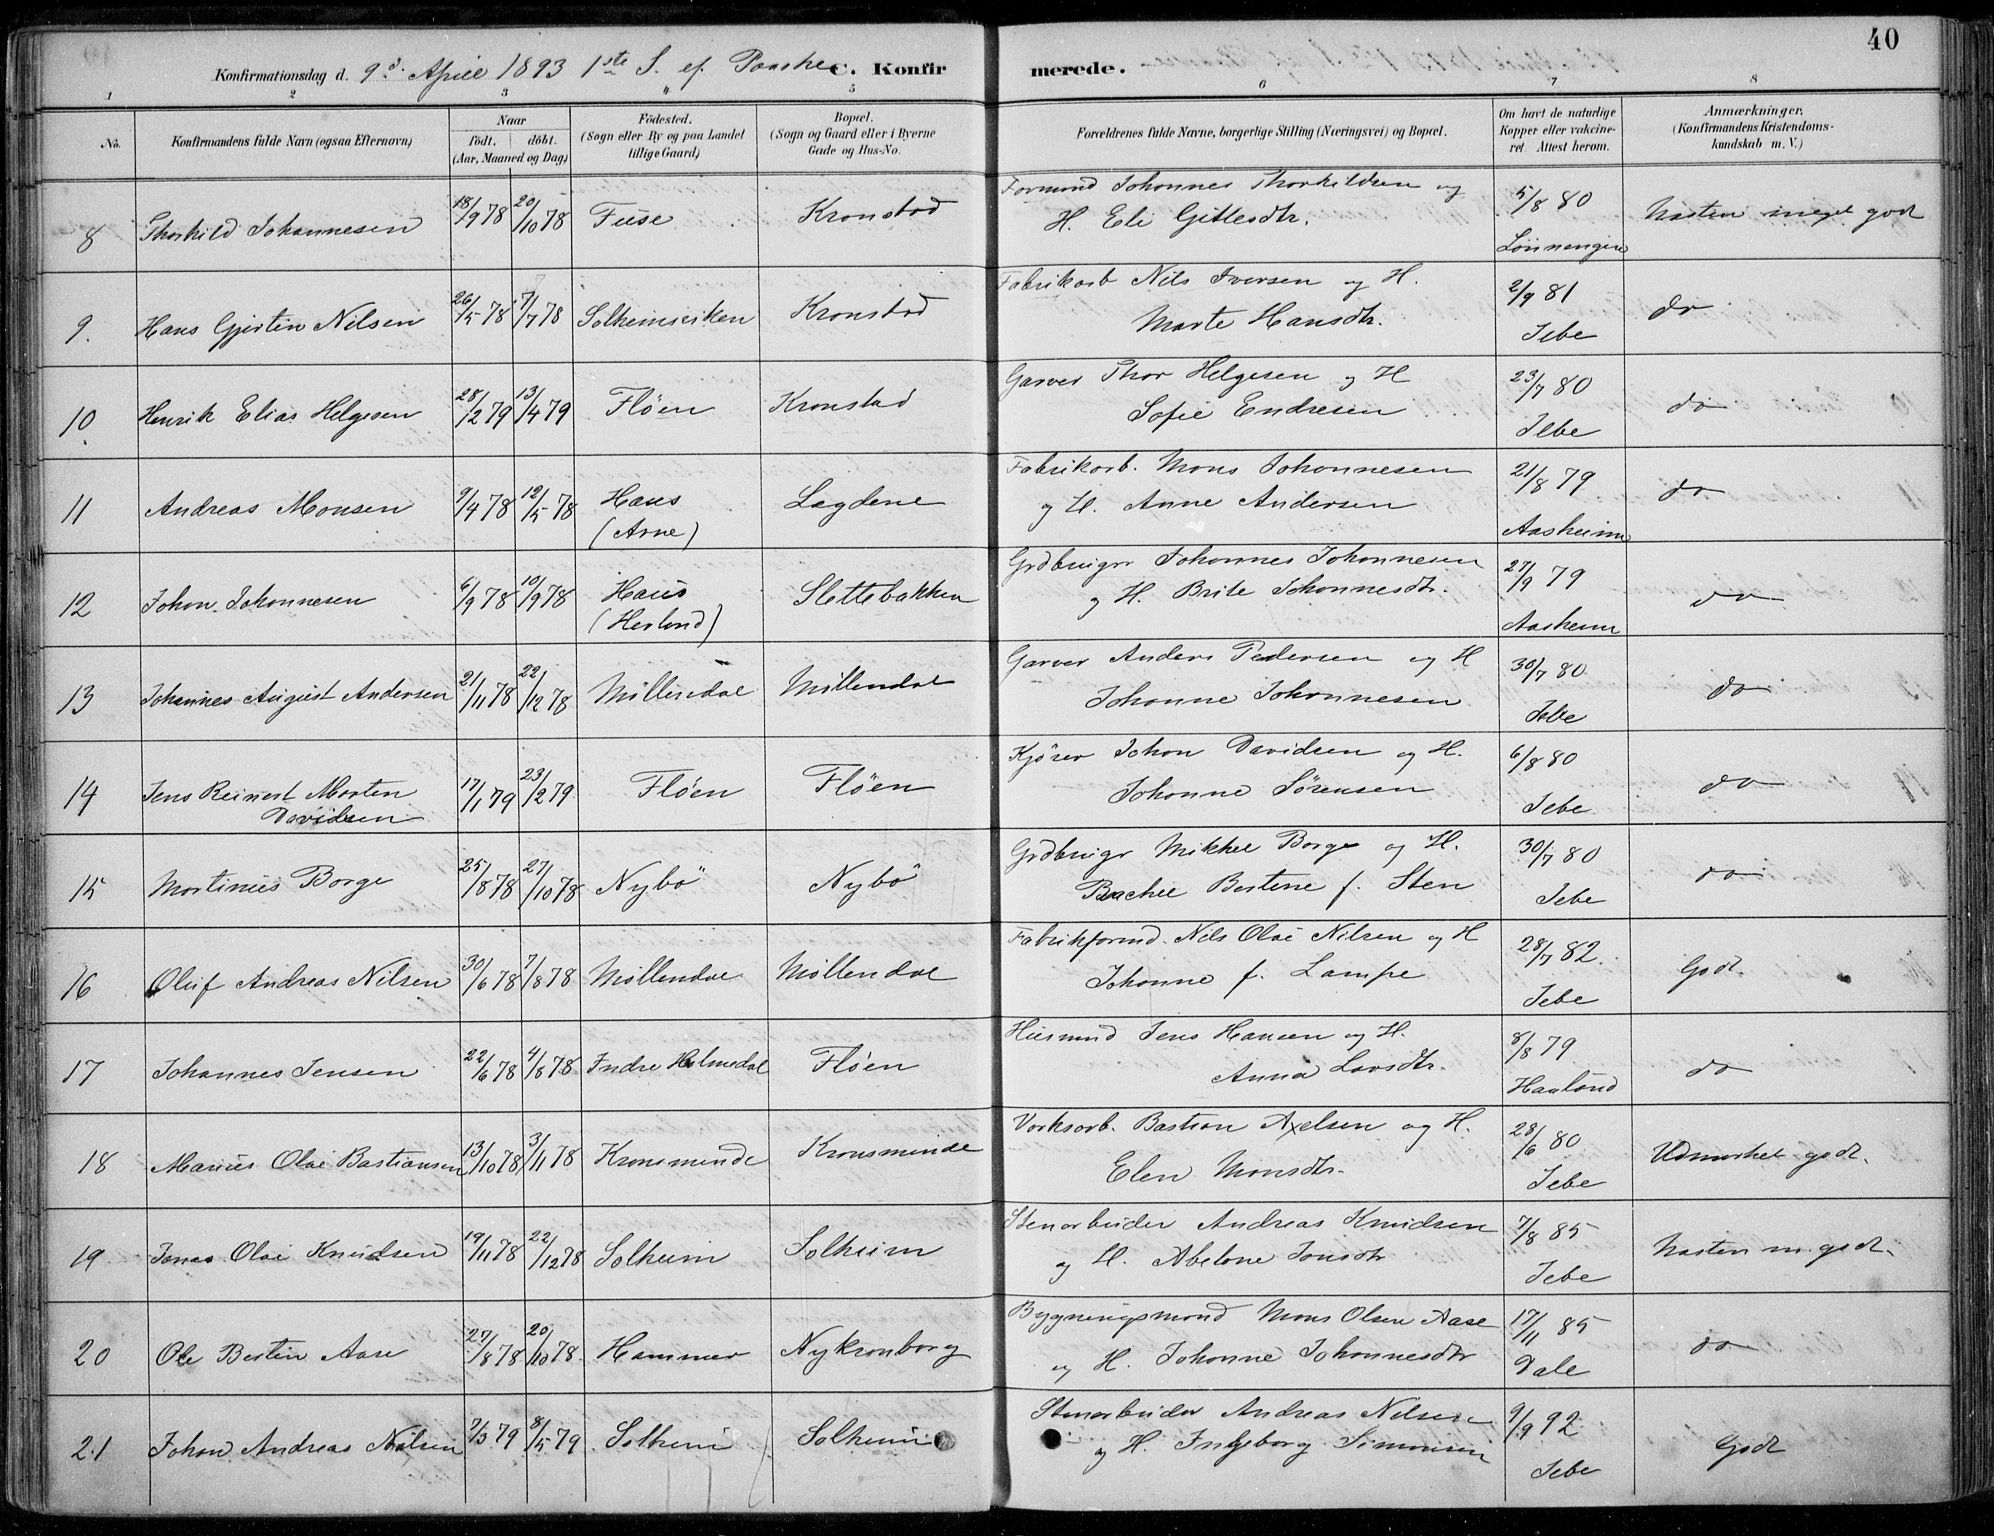 40
Konfirmationsdag d. 9d. April 1893 1ste S. ef. Paaske C. Konfirmerede.
1 2 3 4 5 6 7 8
No. Konfirmandens fulde Navn (ogsaa Efternavn) Naar født. døbt. (Aar, Maaned og Dag) Fødested. (Sogn eller By og paa Landet tillige Gaard) Bopæl. (Sogn og Gaard eller i Byerne Gade og Hus-No. Forældrenes fulde Navne, borgerlige Stilling (Næringsvei) og Bopæl. Om havt de naturlige Kopper eller vakcineret. Attest herom. Anmærkninger. (Konfirmandens Kristendomskundskab m. V.)
8 Thorkild Johannesen 18/9 78 20/10 78 Fuse Kronstad Formand Johannes Thorkildsen og 5/8 80 Næsten meget godt
H. Eli Gittlesdtr. Lønningen
9. Hans Gjertin Nilsen 26/5 78 7/7 78 Solheimsviken Kronstad Fabrikarb Nils Iversen og H. 2/9 81 do
Marte Hansdtr. Jebe
10 Henrik Elias Helgesen 28/12 79 13/4 79 Fløen Kronstad Garver Thor Helgesen og H 23/7 80 do
Sofie Endresen Jebe
11 Andreas Monsen 9/4 78 12/5 78 Haus Lægdene Fabrikarb. Mons Johannesen 21/8 79 do
(Arne) og H. Anne Andersen Aasheim
12 Johan Johannesen 6/9 78 10/9 78 Haus Slettebakken Grdbruger Johannes Johannesen 27/9 79 do
(Herland) og H. Brite Johannesdtr. Aasheim
13 Johannes August Andersen 21/11 78 22/12 78 Møllendal Møllendal Garver Anders Pedersen og H 30/7 80 do
Johanne Johannesen Jebe
14 Jens Reinert Morten 17/1 79 23/2 79 Fløen Fløen Kjører Johan Davidsen og H. 6/8 80 do
Davidsen Johanne Sørensen Jebe
15 Martinus Borge 25/8 78 27/10 78 Nybø Nybø Grdbrugr Mikkel Borge og H. 30/7 80 do
Rachel Bertine f. Sten Jebe
16 Oluf Andreas Nilsen 30/6 78 7/8 78 Møllendal Møllendal Fabrikformd. Nils Olai Nilsen og H 28/7 82. Godt.
Johanne f. Lampe Jebe
17 Johannes Jensen 22/6 78 4/8 78 Indre Holmedal Fløen Husmand Jens Hansen og H. 8/8 79 do
Anna Larsdtr. Haaland
18 Marius Olai Bastiansen 13/10 78 3/11 78 Kronsminde Kronsminde Værksarb. Bastian Axelsen og H. 28/6 80 Udmærket godt.
Elen Monsdtr. Jebe
19 Jonas Olai Knudsen 19/11 78 22/12 78 Solheim Solheim Stenarbeider Andreas Knudsen 7/8 85 Næsten m. godt.
og H. Abelone Jonsdtr Jebe
20 Ole Bertin Aase 27/8 78 20/10 78. Hammer Nykronborg Bygningsmand Mons Olsen Aase 17/11 85 do
og H. Johanne Johannesdtr Dale
21 Johan Andreas Nilsen 7/3 79 8/5 79 Solheim Solheim Stenarbeider Andreas Nilsen 9/9 92 Godt
og H. Ingeborg Simonsen Jebe